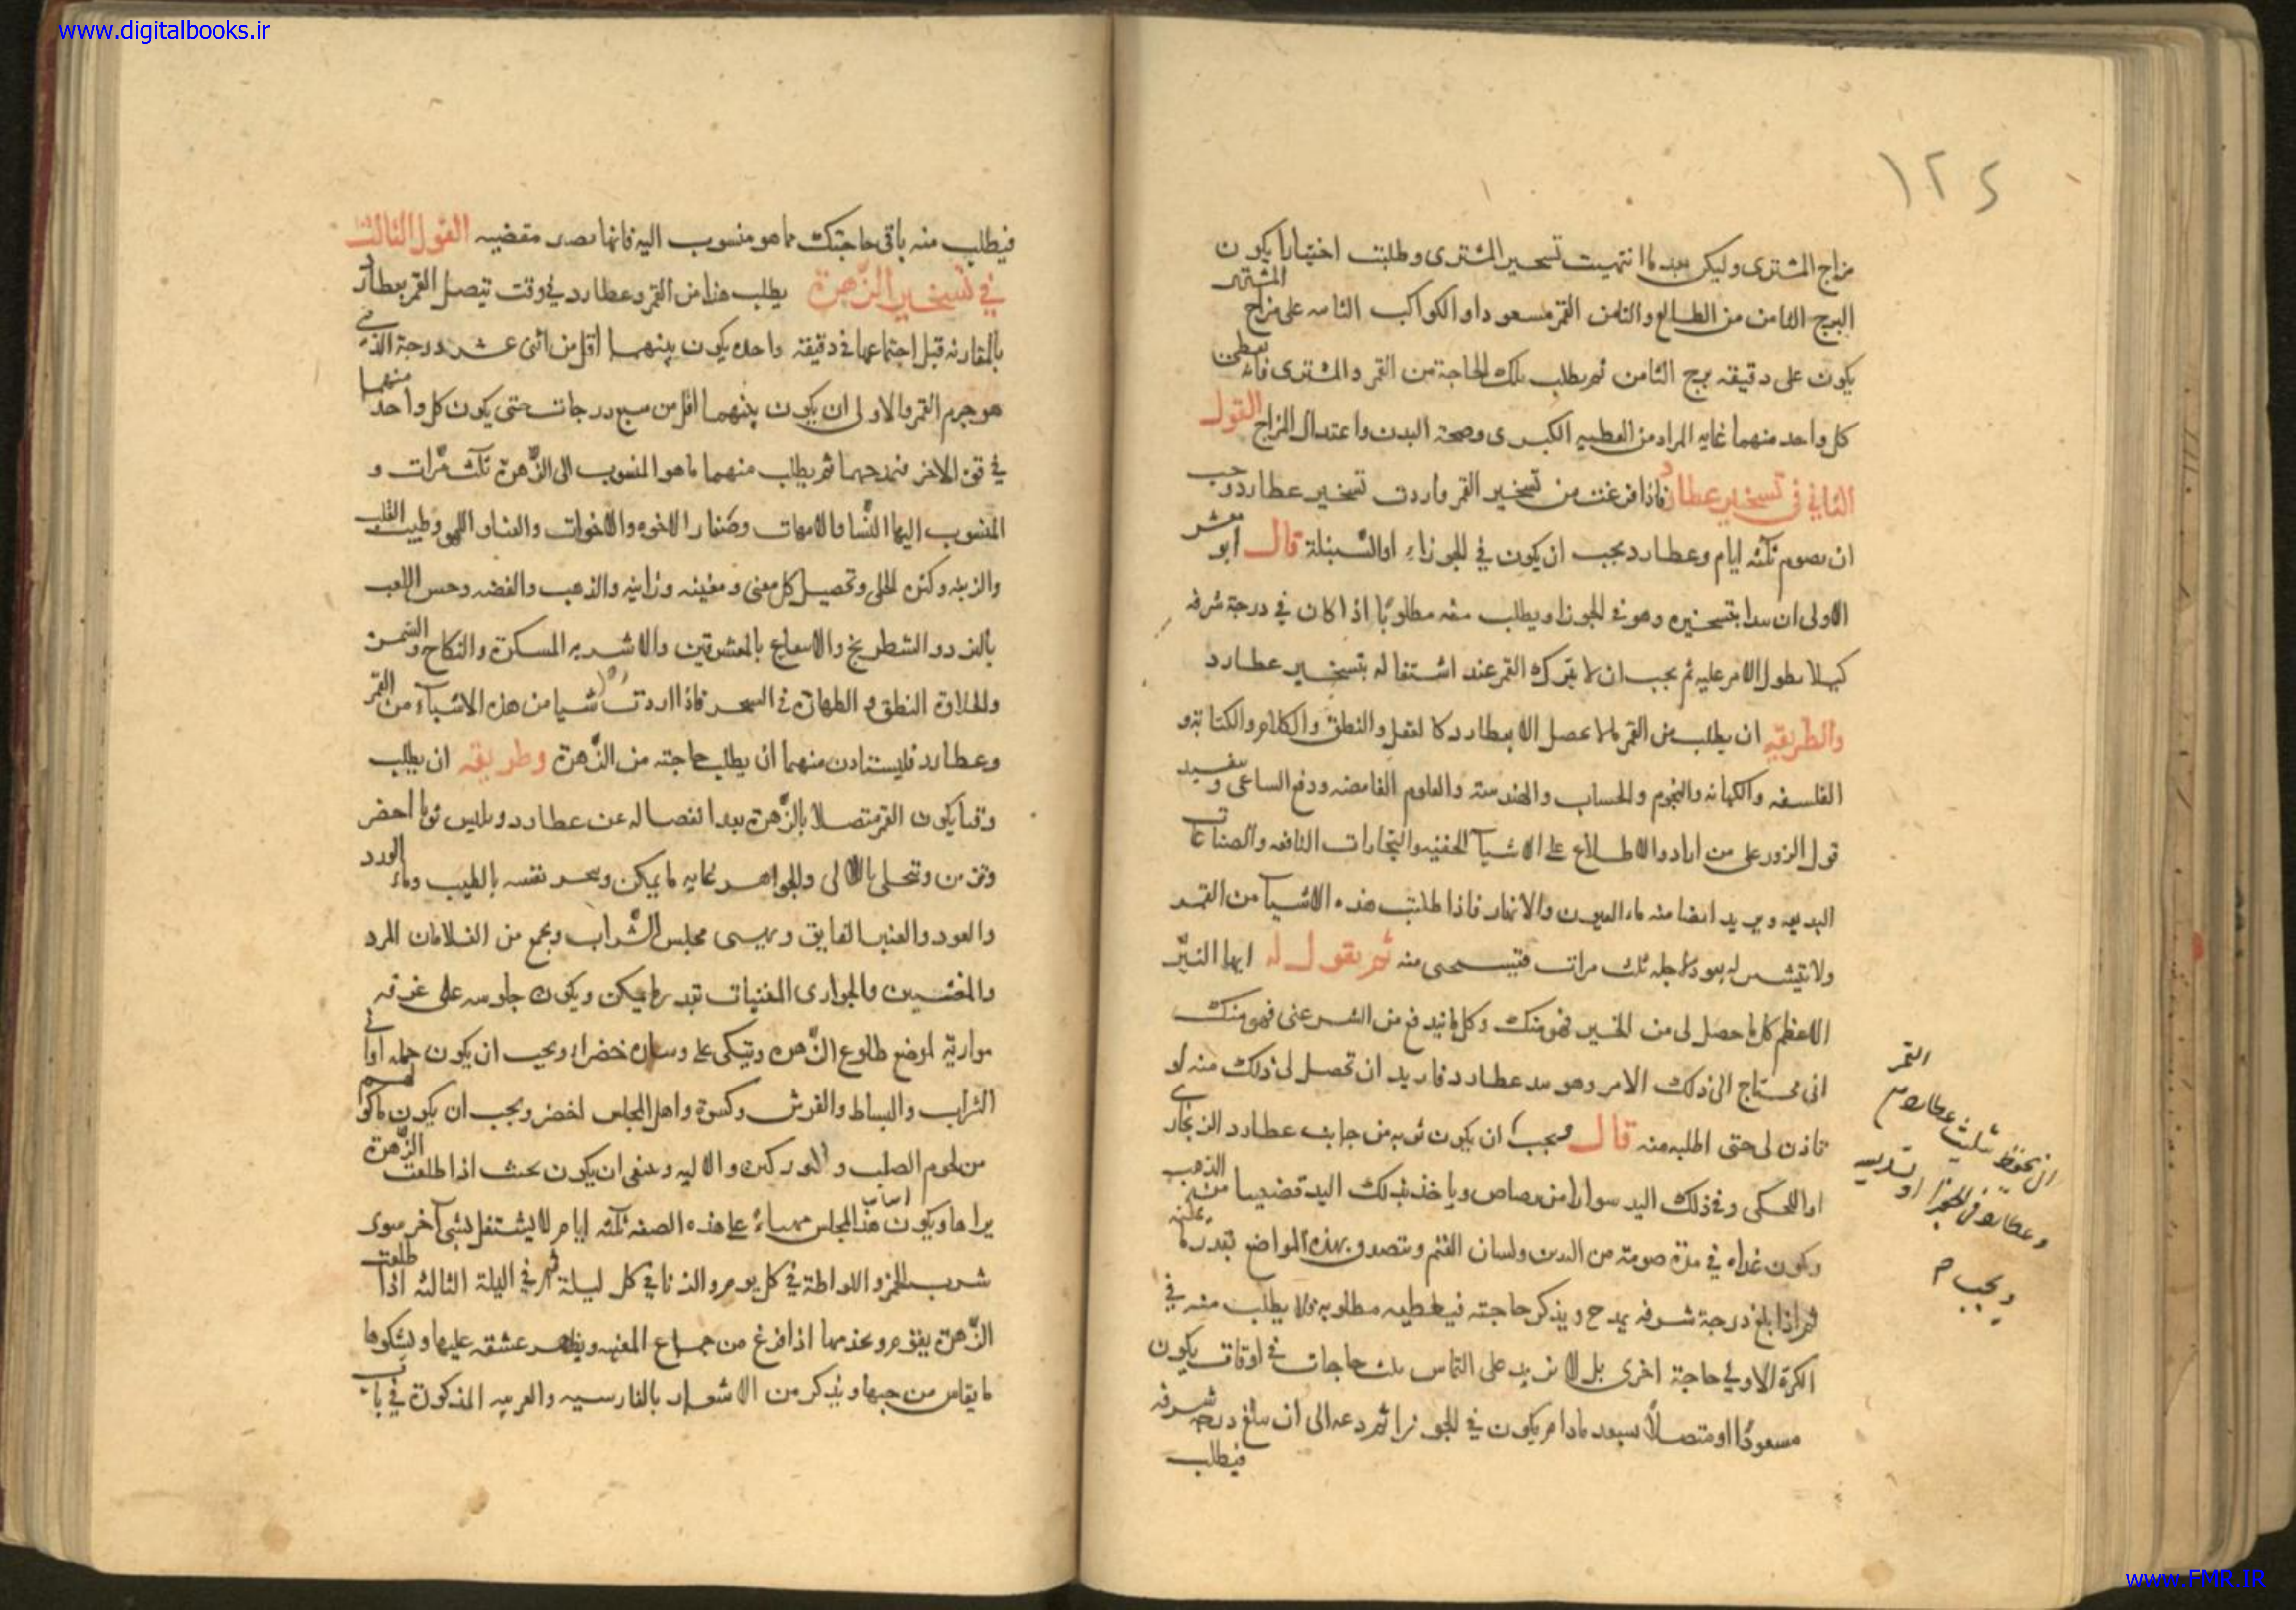 www.digitalbooks.ir
١٢٤
مزاج المشترى وليكن بعد ما انتهيت تسخير المشترى وطلبت اختيارا يكون
البرج الثامن من الطالع والثامن القمر مسعودا والكواكب الثامنه على مزاج المشترى
يكون على دقيقه برج الثامن ثم يطلب تلك الحاجة من القمر والمشترى فانه يعطى
كل واحد منهما غايه المراد من العطيه الكبرى وصحة البدن واعتدال المزاج القول
الثانى فى تسخير عطارد فاذا فرغت من تسخير القمر واردت تسخير عطارد وجب
ان يصوم ثلثه ايام وعطارد يجب ان يكون في الجوزاء او السنبلة قال ابو معشر
الاولى ان يبدا بتسخيره وهو في الجوزا ويطلب منه مطلوبا اذا كان في درجة شرفه
كيلا يطول الامر عليه ثم يجب ان لا يترك القمر عند اشتغاله بتسخير عطارد
والطريقه ان يطلب من القمر ما لا يحصل الا بعطارد كالعقل والنطق والكلام والكتابة و
الفلسفه والكهانه والنجوم والحساب والهندسة والعلوم الغامضه ودفع الساعى و
قول الزور على من اراد والاطلاع على الاشيآ الخفيه والتجارات النافعه والصناعات
البديعه ويريد ايضا منه ماء العيون والانهار فاذا طلبت هذه الاشيآ من القمر
ولا تيشر له يعود لاجله ثلث مرات فتستحى منه ثم يقول له ايها النيّر
الاعظم كل ما حصل لى من الخير فهو منك وكل ما يندفع من الشر عنى فهو منك
انى محتاج الى ذلك الامر وهو بيد عطارد فاريد ان تحصل لى ذلك منه او
تاذن لى حتى اطلبه منه قال ويجب ان يكون ثوبه من جانب عطارد الزنجارى
او الكحكى وفى ذلك اليد سوارا من رصاص وياخذ بذلك اليد قضيبا من الذهب
ويكون غداه في مدة صومه من ولسان الغنم ويتصدق بهذه المواضع بقدر ما
ثم اذا بلغ درجة شرفه يمدح ويذكر حاجته فيعطيه مطلوبه ولا يطلب منه في
الكرة الاولي حاجة اخرى بل لا يزيد على التماس ثلث حاجات في اوقات يكون
مسعودًا او متصلاً بسعد مادام يكون في الجوزا ثم دعه الى ان يبلغ درجة شرفه
فيطلب
القمر
ويجب م
فيطلب منه باقى حاجتك مما هو منسوب اليه فانها تصير مقضيه القول الثالث
في تسخير الزّهرة يطلب هذا من القمر وعطارد في وقت يتصل القمر بعطارد
بالمقارنه قبل اجتماعهما فى دقيقه واحده يكون بينهما اقل من اثنى عشر درجة الذى
هو جرم القمر والاولى ان يكون بينهما اقل من سبع درجات حتى يكون كل واحد منهما
في قوة الاخر فيمدحهما ثم يطلب منهما ما هو المنسوب الى الزّهرة ثلث مّرات و
المنسوب اليها النّسا والامهات وصغار الاخوه والاخوات والغناء واللهو وطيب القلب
والزينه وكثره الحلى وتحصيل كل مغنى ومغنيه وزانيه والذهب والفضه وحسن اللعب
بالنرد والشطرنج والاستمتاع بالمعشوقين والاشربه المسكرة والنكاح والسمن
والحلاوة النطق و الطهاة في السحر فاذا اردت شيا من هذه الاشيآء من القمر
وعطارد فليستاذن منهما ان يطلب حاجته من الزّهرة وطريقه ان يطلب
وقتا يكون القمر متصلا بالزّهرة بعد انفصاله عن عطارد ويلبس ثوبا اخضر
وتزين وتتحلى باللآلى والجواهر غايه ما يمكن ويبخر نفسه بالطيب وماء الورد
والعود والعنبر الفايق ويهيى مجلس الشّراب ويجمع من الغلامان المرد
والمخنثين والجوارى المغنيات بقدر ما يمكن ويكون جلوسه على غرفه
موازية لموضع طلوع الزّهره ويتكى على وساده خضراء ويجب ان يكون جمله اوانى
الشراب والبساط والفرش وكسوة واهل المجلس اخضر ويجب ان يكون ماكولهم
من لحوم الصلب و الوركين والاليه وينبغى ان يكون بحيث اذا طلعت الزّهرة
يراها ويكون هذا المجلس مهيّاءً على هذه الصفه ثلثه ايام لا يشتغل بشىٔ آخر سوى
شرب الخمر واللواطة في كل يوم والزنا في كل ليلة ثم في الليلة الثالثه اذا طلعت
الزّهرة يقوم ويخدمها اذا فرغ من جماع المغنيه ويظهر عشقه عليها ويشكوها
ما يقاس من حبها ويذكر من الاشعار بالفارسيه والعربيه المذكورة في باب
www.FMR.IR